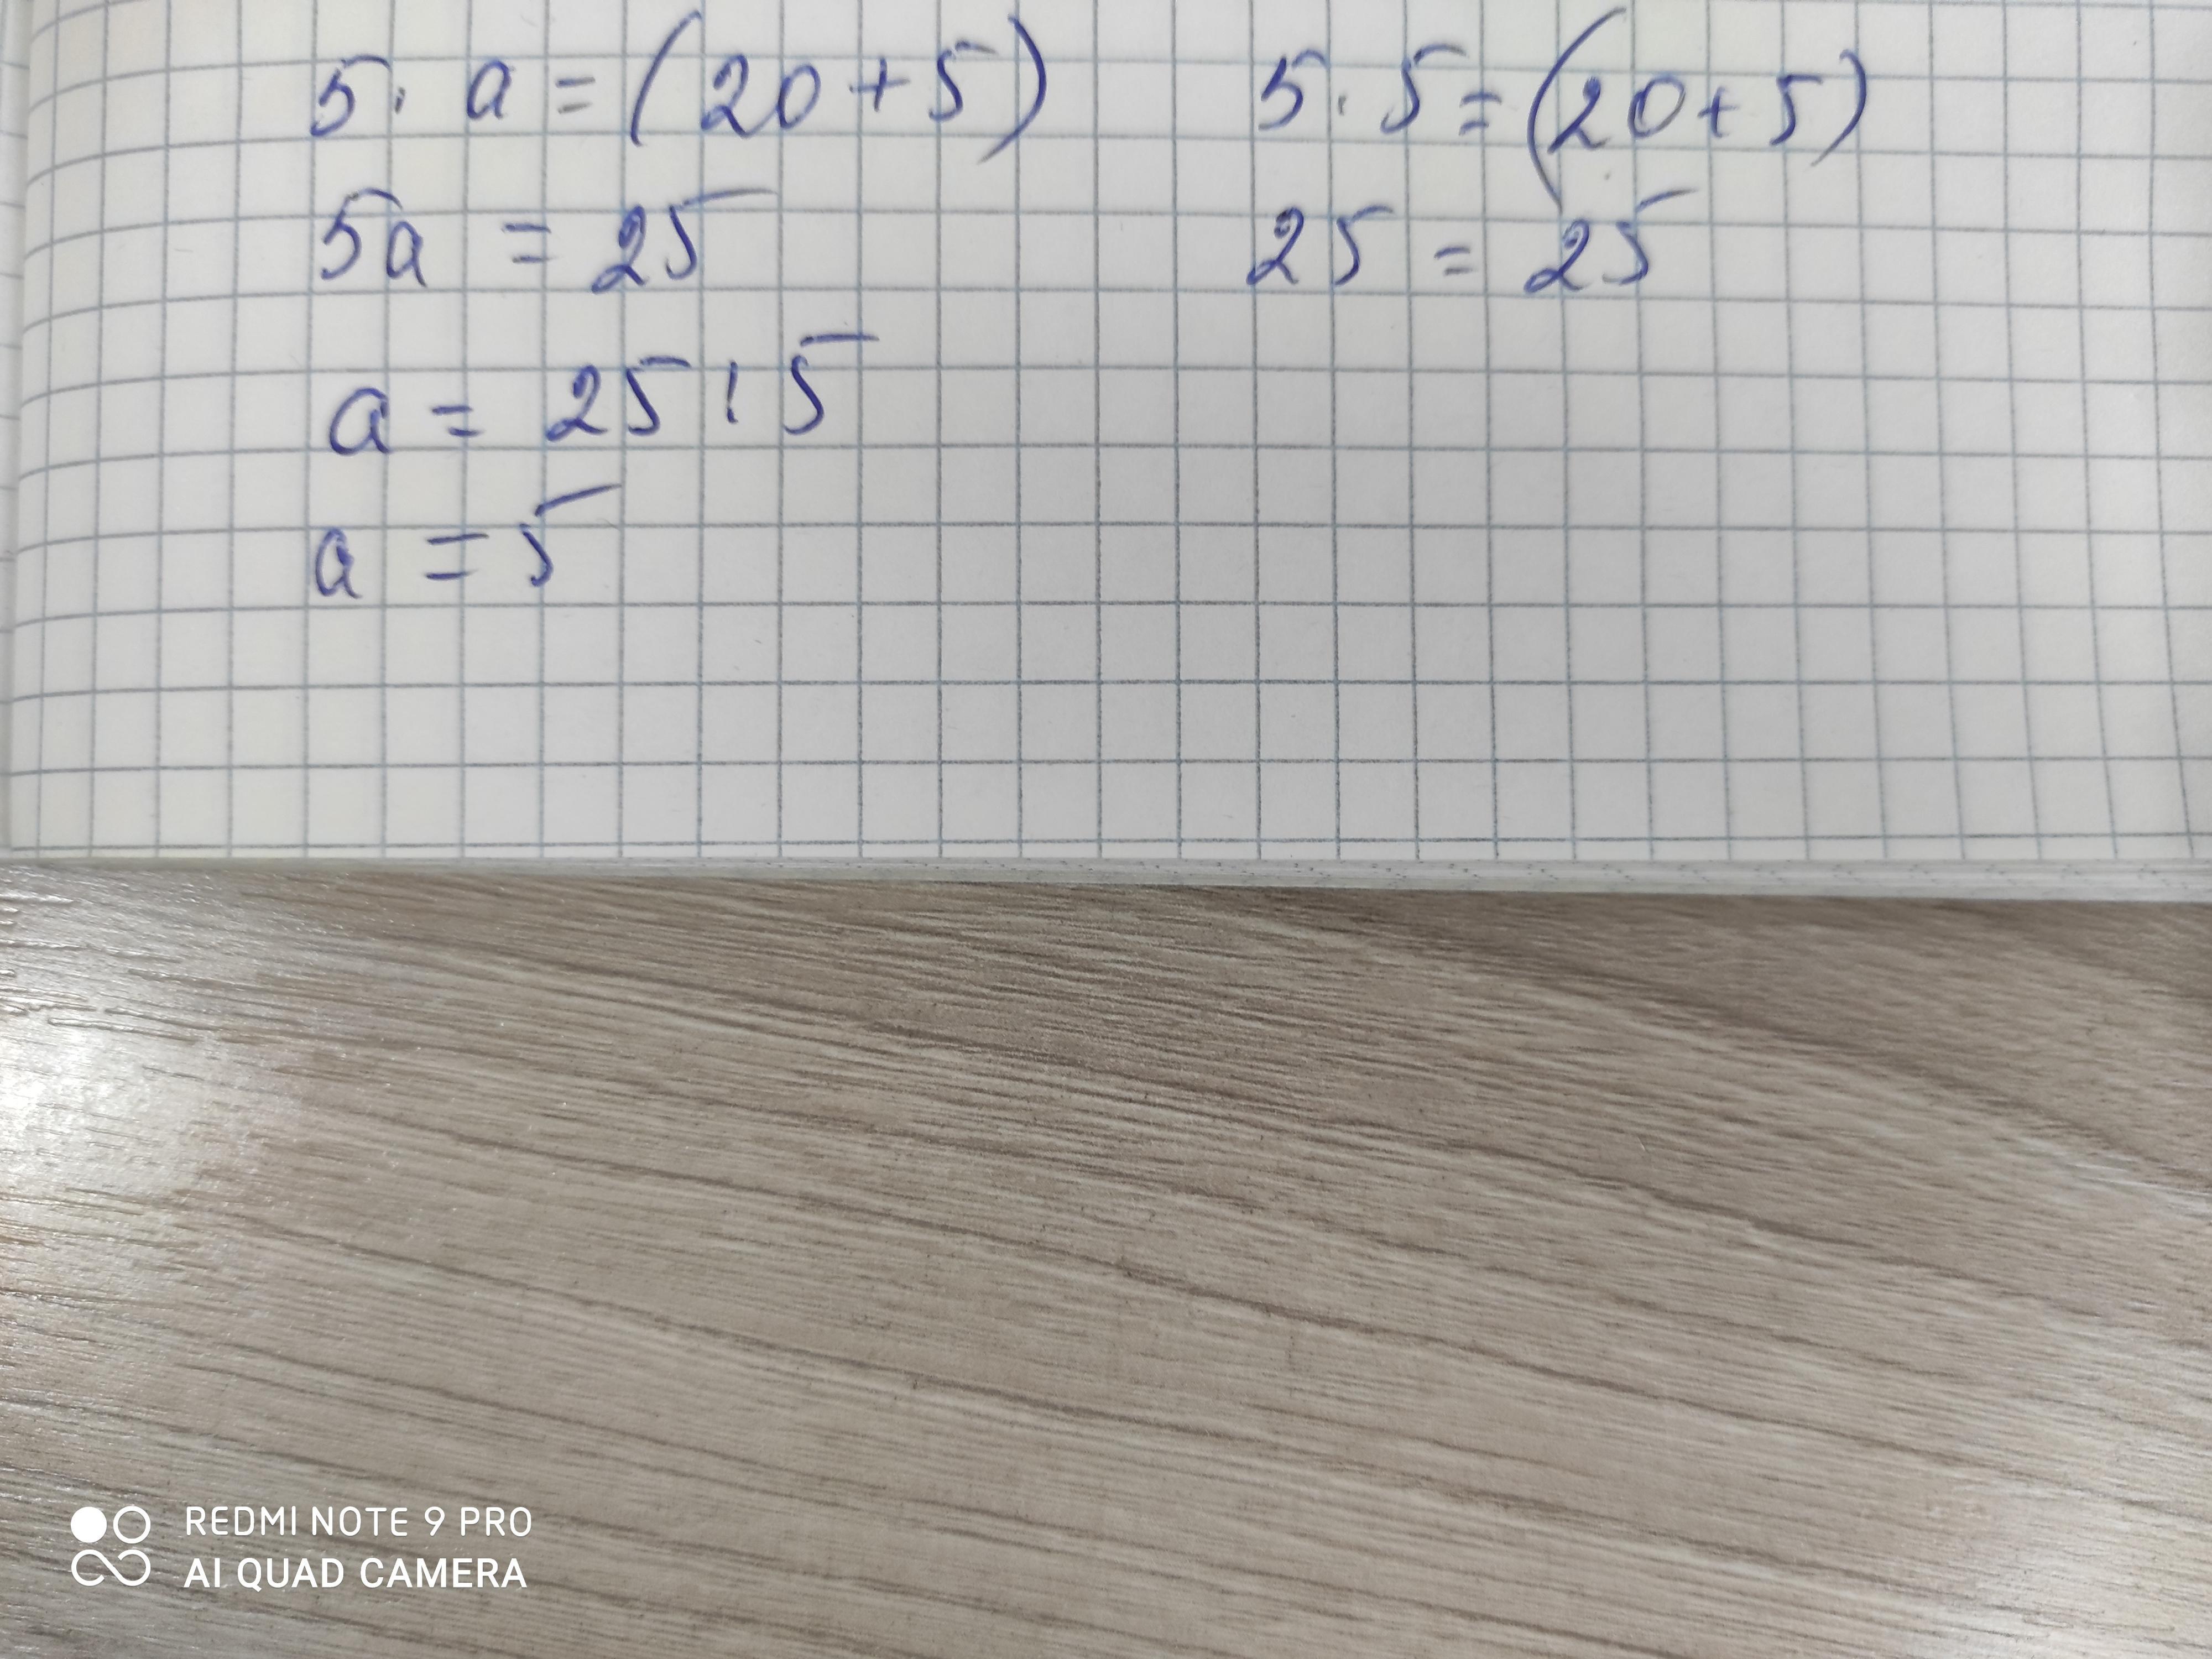 5 · a = (20 + 5)
5a = 25
a = 25 : 5
a = 5
5 · 5 = (20 + 5)
25 = 25
REDMI NOTE 9 PRO
AI QUAD CAMERA